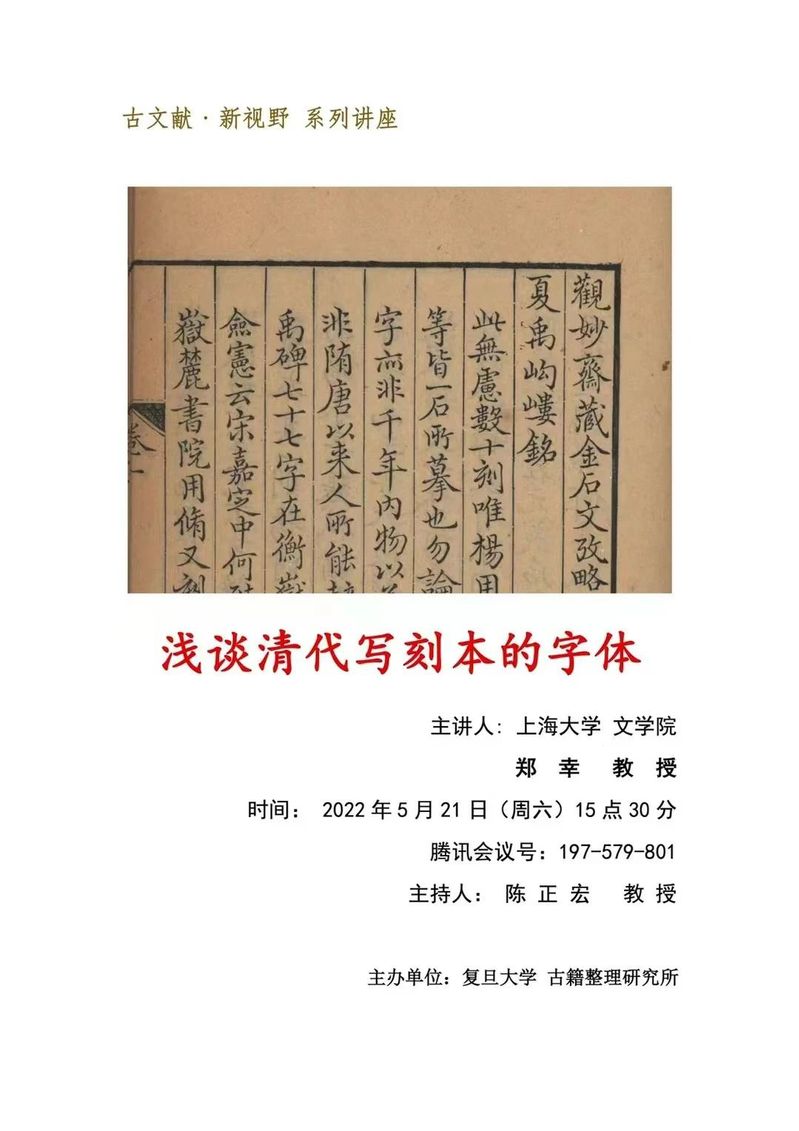 古文献·新视野 系列讲座
觀妙齋藏金石文攷略
夏禹岣嶁銘
此無慮數十刻唯楊用
等皆一石所摹也勿論
字亦非千年內物以
非隋唐以来人所能
禹碑七十七字在衡嶽
僉憲云宋嘉定中何
嶽麓書院用脩又刻
卷一
浅谈清代写刻本的字体
主讲人: 上海大学 文学院
郑 幸 教 授
时间： 2022年5月21日（周六）15点30分
腾讯会议号：197-579-801
主持人： 陈 正 宏 教 授
主办单位：复旦大学 古籍整理研究所